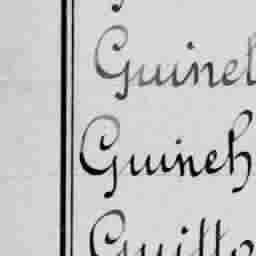 Guinel
Guineh
Guitto